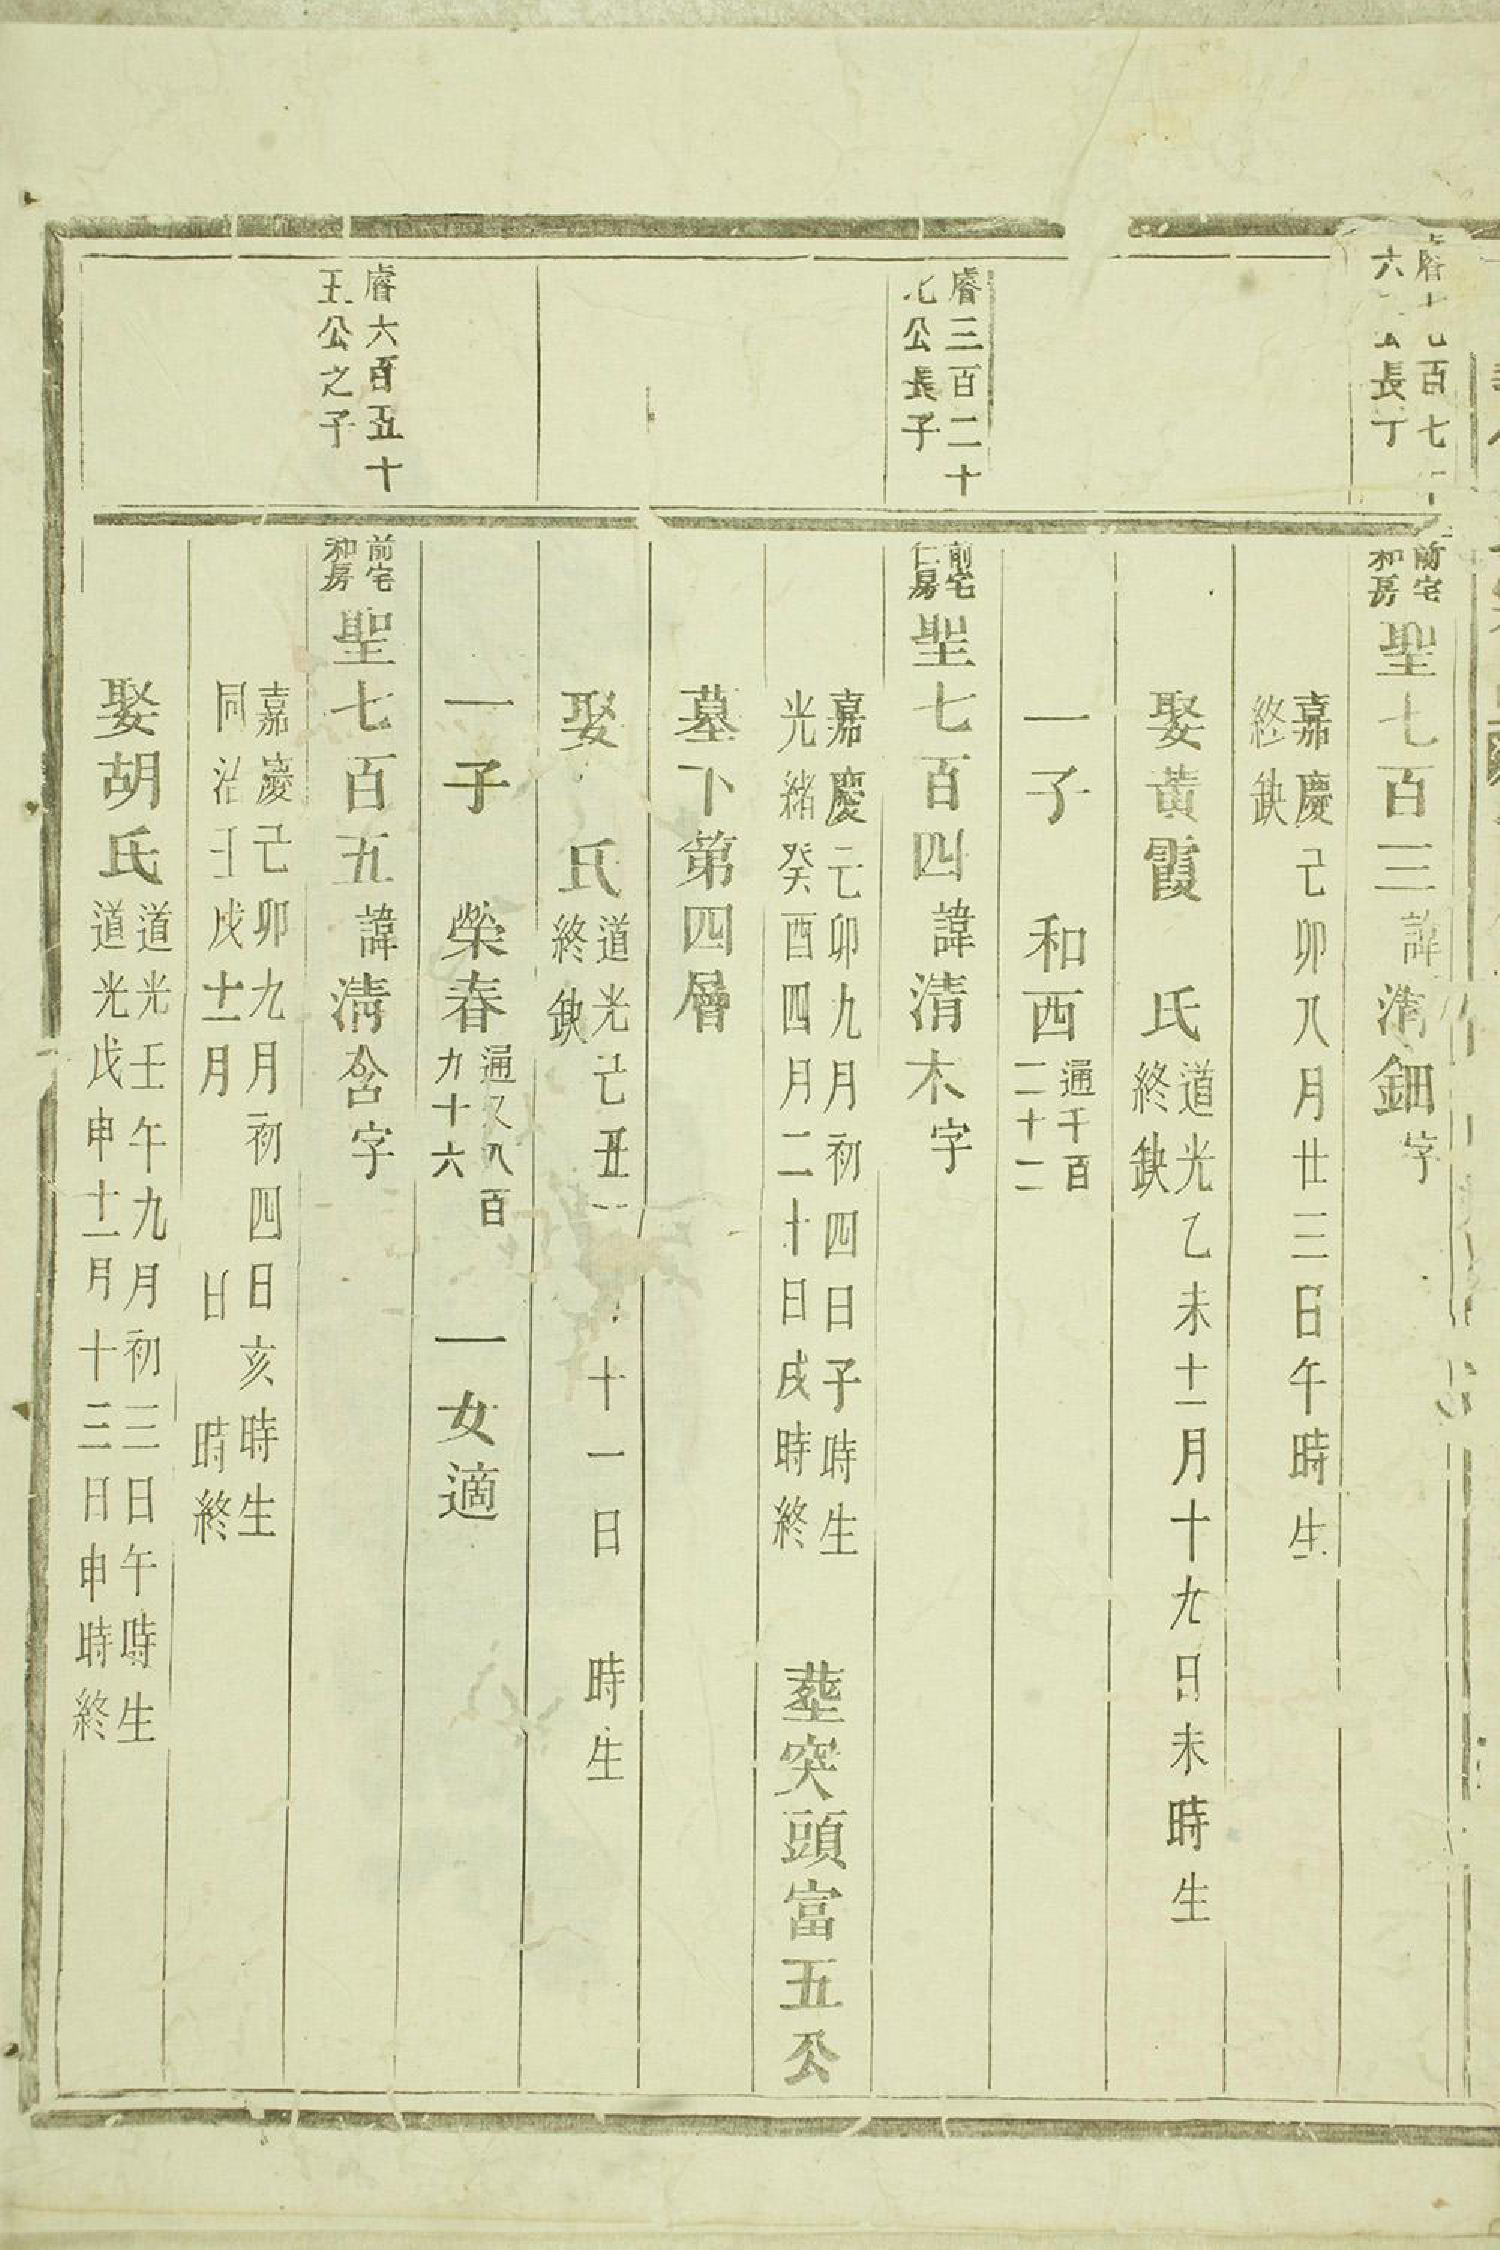 前宅和房
聖七百三諱清鈿字
嘉慶己卯八月廿三日午時生
終缺
娶黃霞氏
道光乙未十二月十九日未時生
終缺
一子 和西
通千百
二十二
睿三百二十
公長子
前宅仁房
聖七百四諱清木字
嘉慶己卯九月初四日子時生
光緒癸酉四月二十日戌時終
塟突頭富五公
墓下第四層
娶 氏
道光己丑 十一日 時生
終缺
一子 榮春
通又八百
九十六
一女適
睿六百五十
五公之子
前宅和房
聖七百五諱清含字
嘉慶己卯九月初四日亥時生
同治壬戌十一月 日 時終
娶胡氏
道光壬午九月初三日午時生
道光戊申十一月十三日申時終